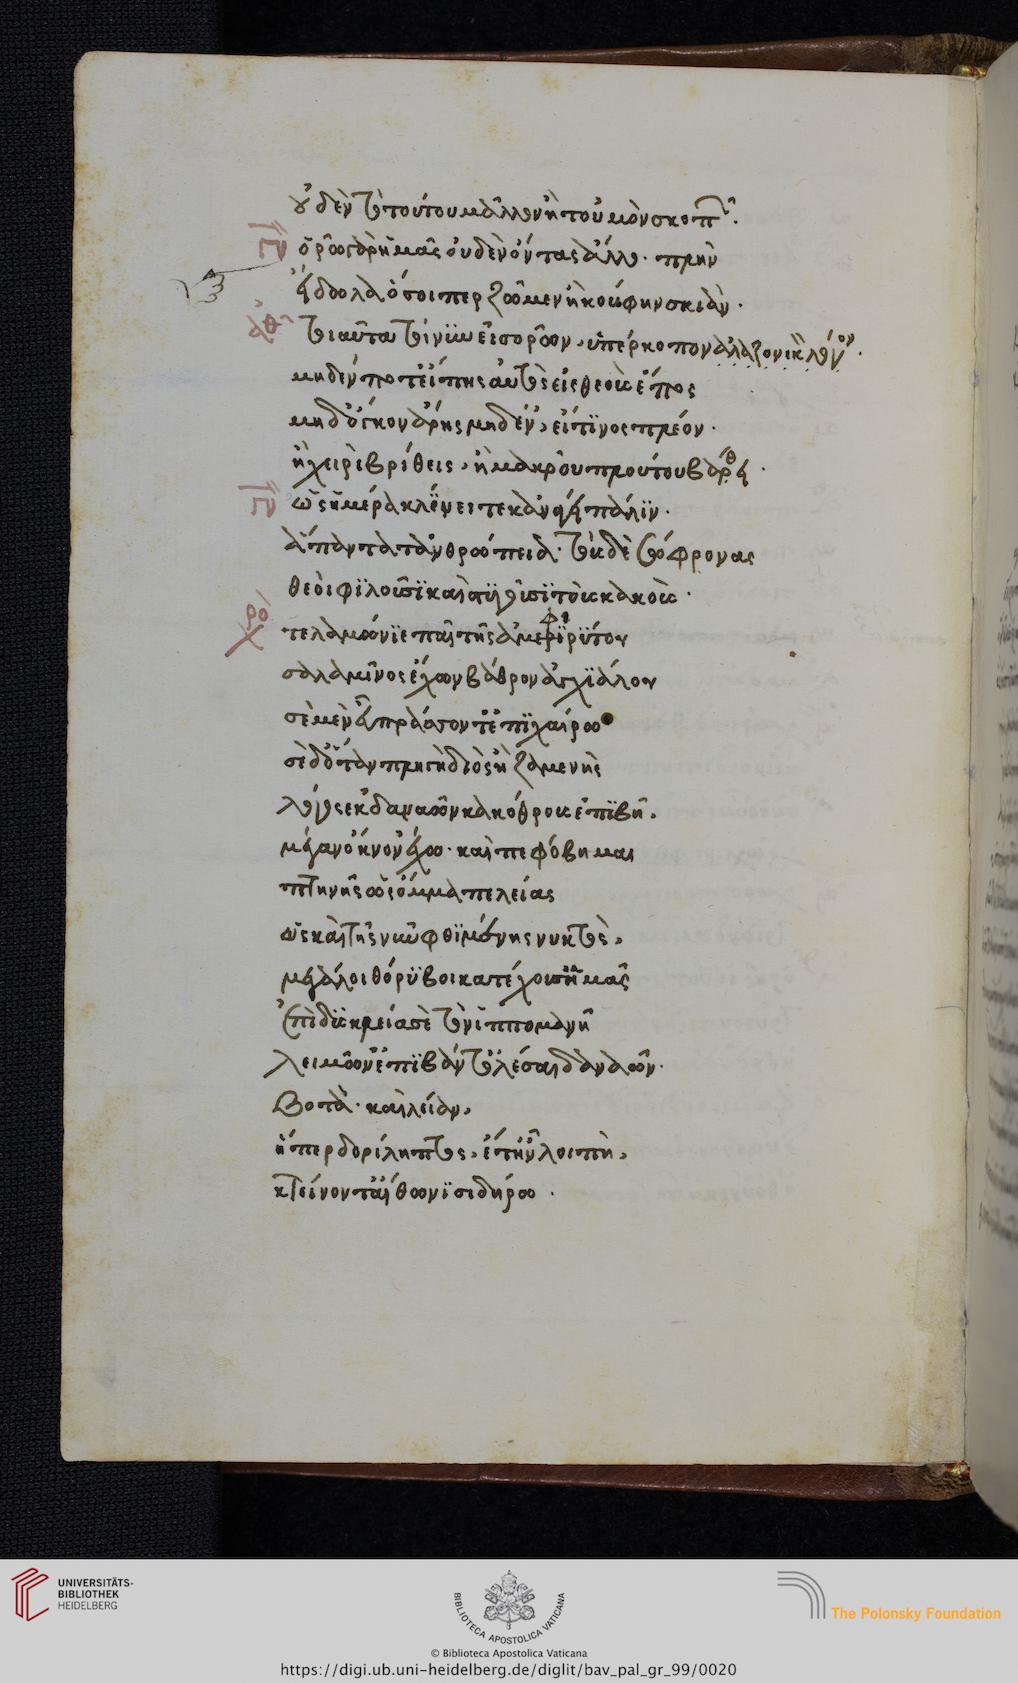 οὐδὲν τὸ τούτου μᾶλλον ἢ τοὐμὸν σκοπῶ.
ὁρῶ γὰρ ἡμᾶς οὐδὲν ὄντας ἄλλο. πλὴν
εἴδωλα ὅσοιπερ ζῶμεν ἢ κούφην σκιάν.
τοιαῦτα τοίνυν εἰσορῶν, ὑπέρκοπον
μηδέν ποτ' εἴπῃς αὐτὸς εἰς θεοὺς ἔπος
μηδ' ὄγκον ἄρῃς μηδέν', εἴ τινος πλέον.
ἢ χειρὶ βρίθεις, ἢ μακροῦ πλούτου βάρει.
ὡς ἡμέρα κλίνει τε κἀνάγει πάλιν.
ἅπαντα τἀνθρώπεια. τοὺς δὲ σώφρονας
θεοὶ φιλοῦσι καὶ στυγοῦσι τοὺς κακούς.
χορό
τελαμώνιε παῖ τῆς ἀμφιρύτου
σαλαμῖνος ἔχων βάθρον ἀγχιάλου
σὲ μὲν εὖ πράσσοντ' ἐπιχαίρω
σὲ δ' ὅταν πληγὴ διὸς ἢ ζαμενὴς
λόγος ἐκ δαναῶν κακόθρους ἐπιβῇ,
μέγαν ὄκνον ἔχω. καὶ πεφόβημαι
πτηνῆς ὡς ὄμμα πελείας
ὡς καὶ τῆς νῦν φθιμένης νυκτὸς,
μεγάλοι θόρυβοι κατέχουσ' ἡμᾶς
ἐπὶ δυσκλείᾳ σὲ τὸν ἱππομανῆ
λειμῶν' ἐπιβάντ' ὀλέσαι δαναῶν.
βοτὰ. καὶ λείαν,
ἥπερ δορίληπτος, ἔτ' ἦν λοιπὴ,
κτείνοντ' αἴθωνι σιδήρω.
UNIVERSITÄTS-
BIBLIOTHEK
HEIDELBERG
BIBLIOTECA APOSTOLICA VATICANA
The Polonsky Foundation
© Biblioteca Apostolica Vaticana
https://digi.ub.uni-heidelberg.de/diglit/bav_pal_gr_99/0020